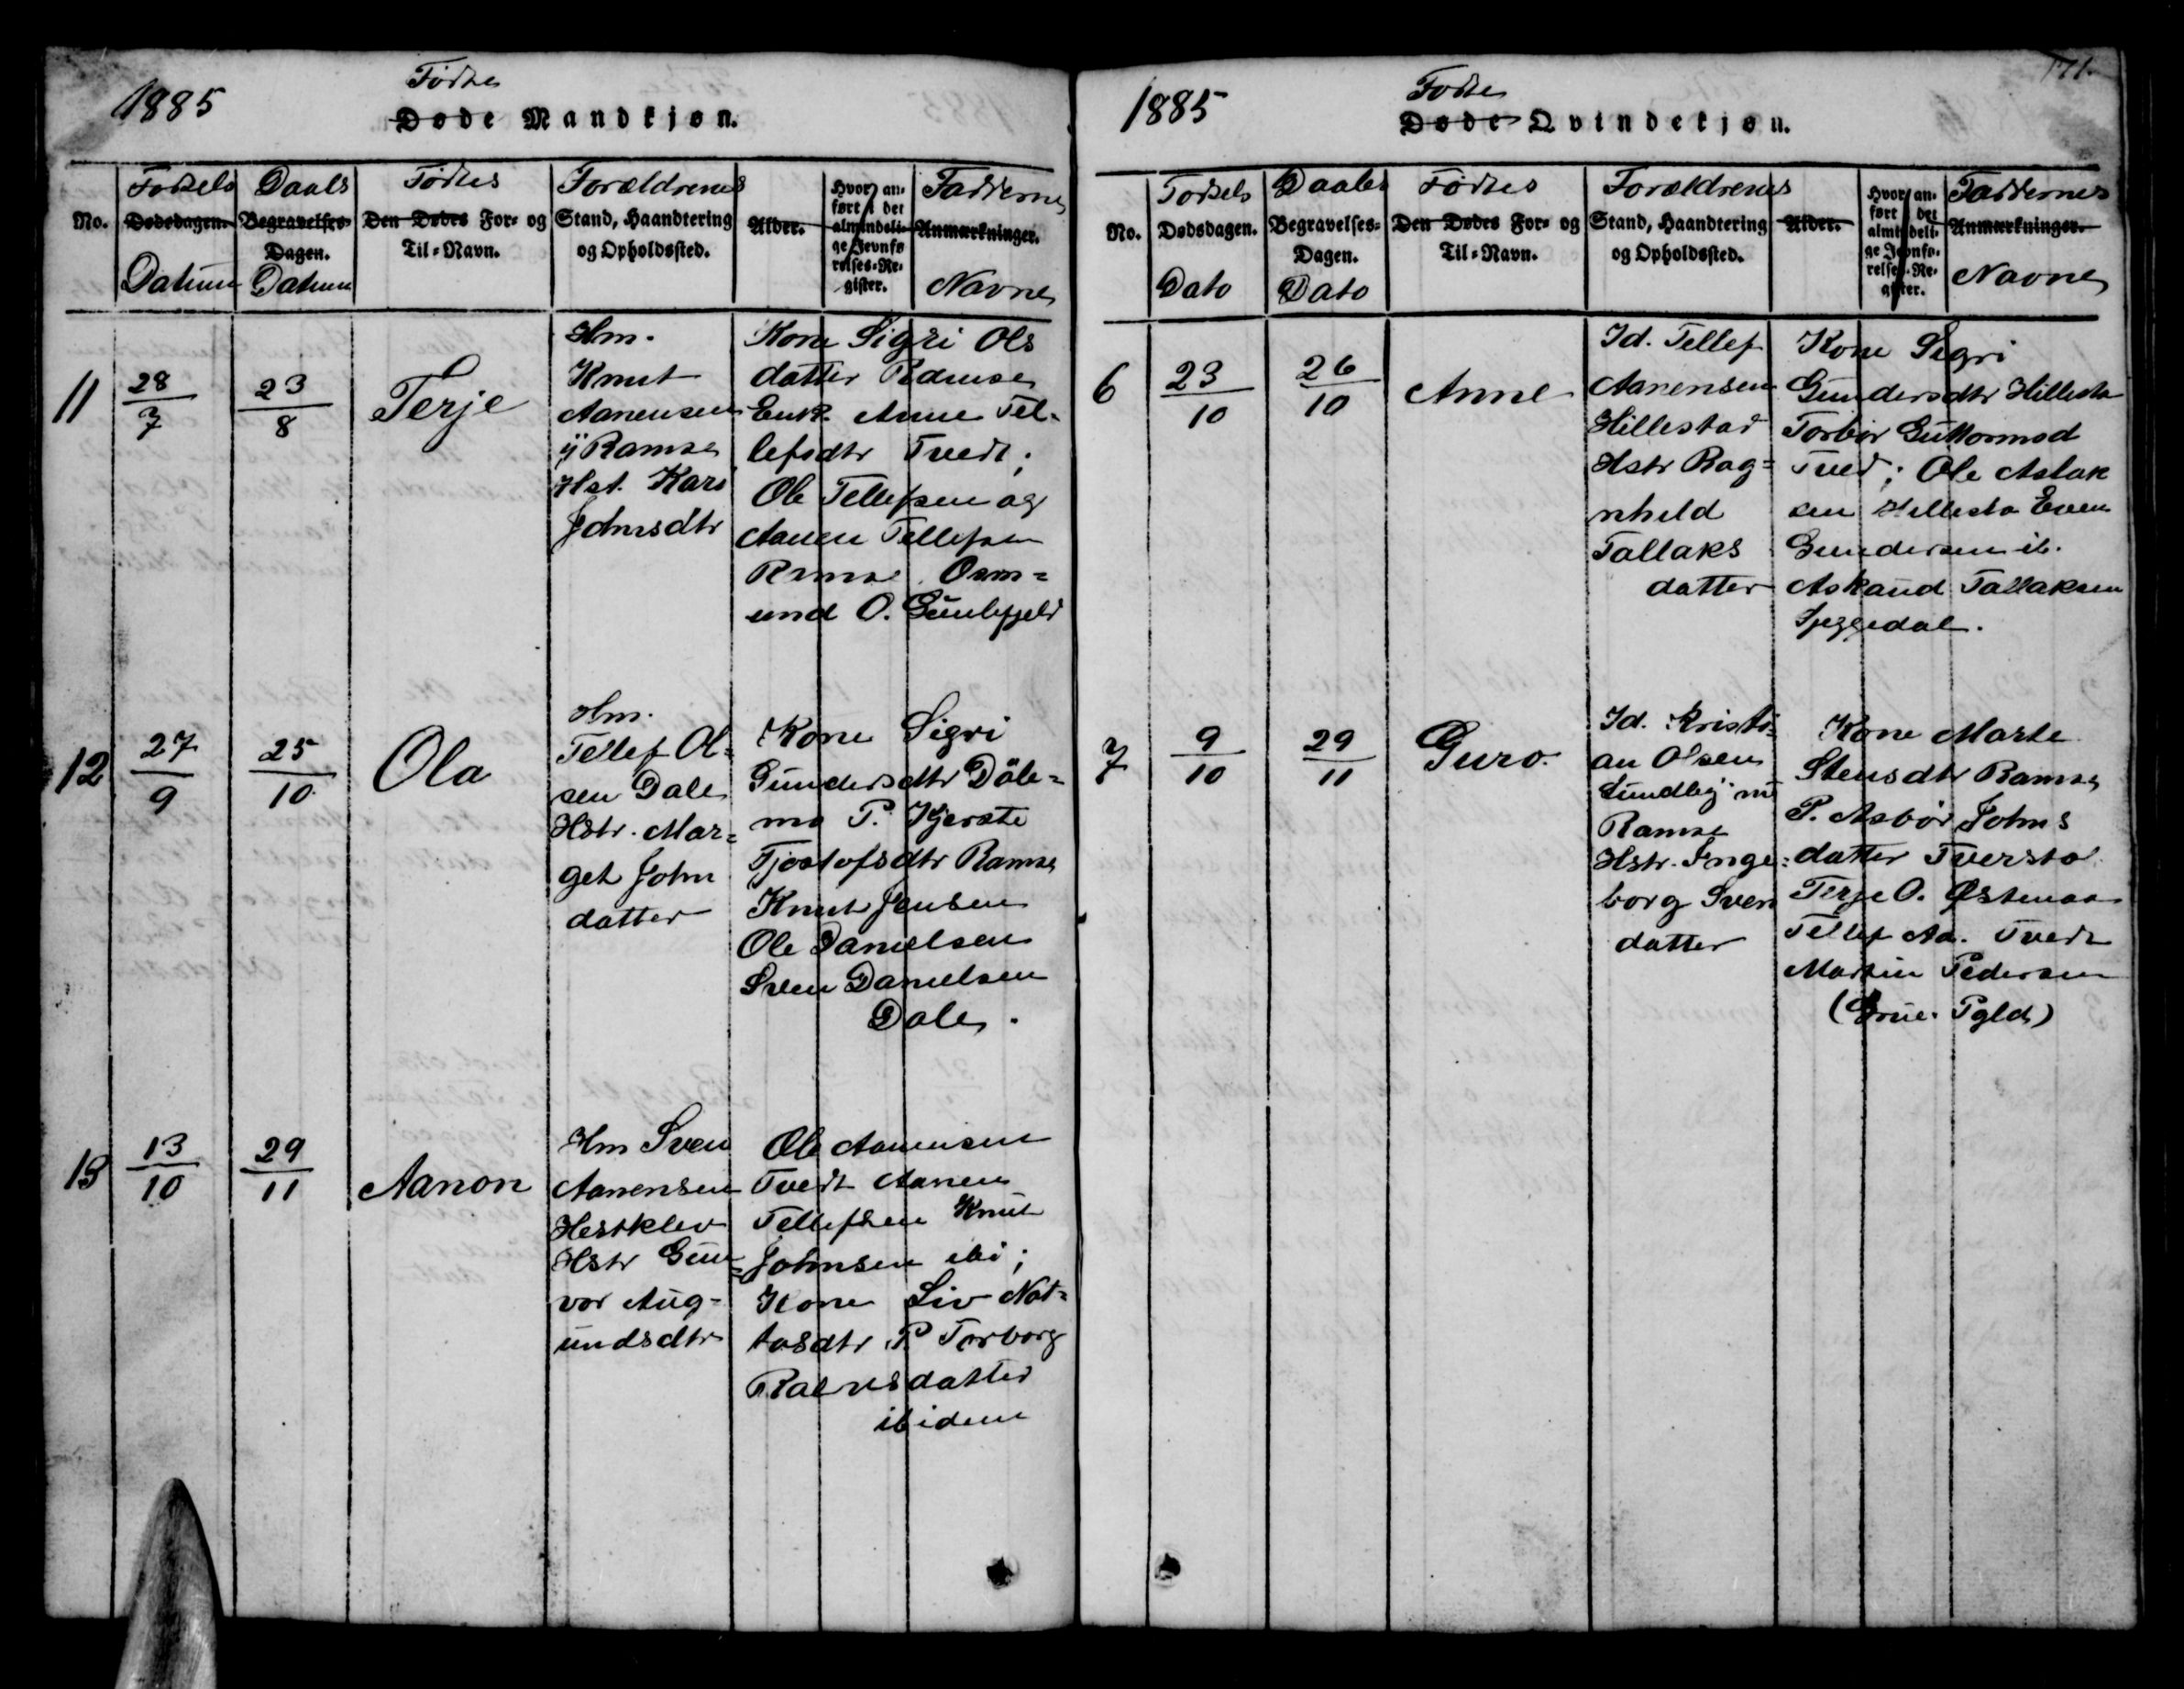 1885
Fødte
Døde Mandkjøn.
No.
Fødsels
Dødsdagen.
Datum
Daabs
Begravelses-
Dagen.
Datum
Fødtes
Den Dødes For- og
Til-Navn.
Forældrenes
Stand, Haandtering
og Opholdssted.
Alder.
Hvor an-
ført i det
almindeli-
ge Jevnfø-
relses-Re-
gister.
Faddernes
Anmærkninger.
Navne
11
28/7
23/8
Terje
Hm.
Knut
Aanensen
Ramse
Hst. Kari
Johnsdtr
Kone Sigri Ols
datter Ramse
Enk. Anne Tel-
lefsdtr Tvedt;
Ole Tellefsen og
Aanen Tellefsen
Ramse. Osm=
und O.
12
27/9
25/10
Ola
Hm.
Tellef Ol-
sen Dale
Hstr. Mar=
get John
datter
Kone Sigri
Gundersdtr Døle=
mo P. Kjerste
Tjostofsdtr Ramse
Knut Jensen
Ole Danielsen
Sven Danielsen
Dale.
13
13/10
29/11
Aanon
Hm Sven
Aanensen
Hestklev
Hstr Gun=
vor Aug-
undsdtr
Ole Aanensen
Tvedt Aanen
Tellefsen Knut
Johnsen ibi;
Kone Liv Not=
tosdtr P. Torborg
datter
ibidem
1885
Fødte
Døde Qvindekjøn.
171.
No.
Fødsels
Dødsdagen.
Dato
Daabs
Begravelses-
Dagen.
Dato
Fødtes
Den Dødes For- og
Til-Navn.
Forældrenes
Stand, Haandtering
og Opholdssted.
Alder.
Hvor an-
ført i det
almindeli-
ge Jevnfø-
relses-Re-
gister.
Faddernes
Anmærkninger.
Navne
6
23/10
26/10
Anne
Id. Tellef
Aanensen
Hillestad
Hstr Rag=
nhild
Tallaks
datter
Kone Sigri
Gundersdtr Hillesta
Torbør Guttormsd
Tved; Ole Aslak
sen Hillesta Even
Gundersen ib.
Askaud Tallaksen
7
9/10
29/11
Guro.
Id. Kristi=
an Olsen
nu
Ramse
Hstr. Inge=
borg Sven
datter
Kone Marte
Stensdtr Ramse
P. Asbør Johns
datter Tversta
Terje O. Østenaa
Tellef Aa. Tvedt
Martin Pedersen
(Grue Pgld)